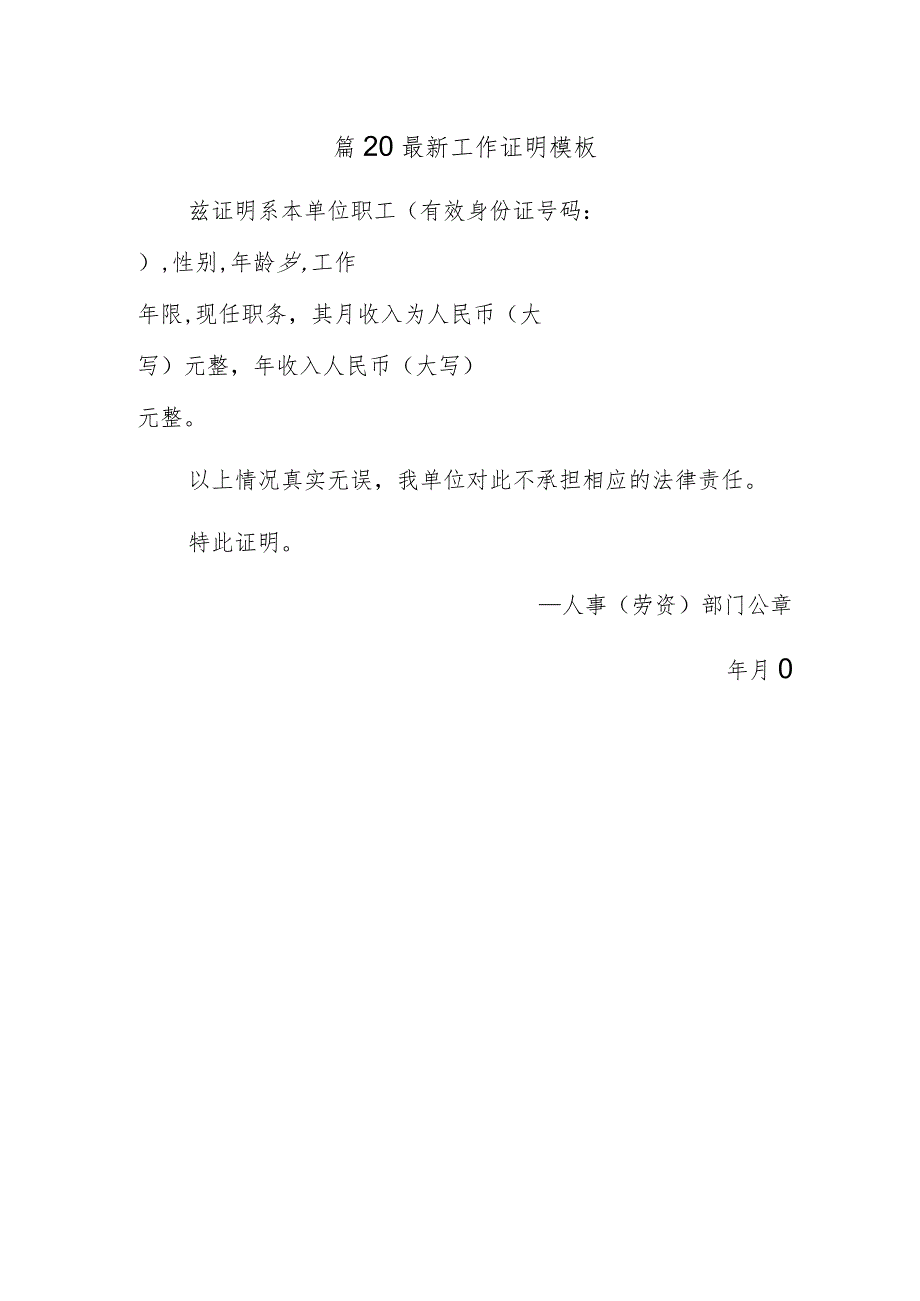 篇 20 最新工作证明模板
兹证明系本单位职工（有效身份证号码：
）,性别,年龄岁,工作
年限,现任职务，其月收入为人民币（大
写）元整，年收入人民币（大写）
元整。
以上情况真实无误，我单位对此不承担相应的法律责任。
特此证明。
—人事（劳资）部门公章
年月 0